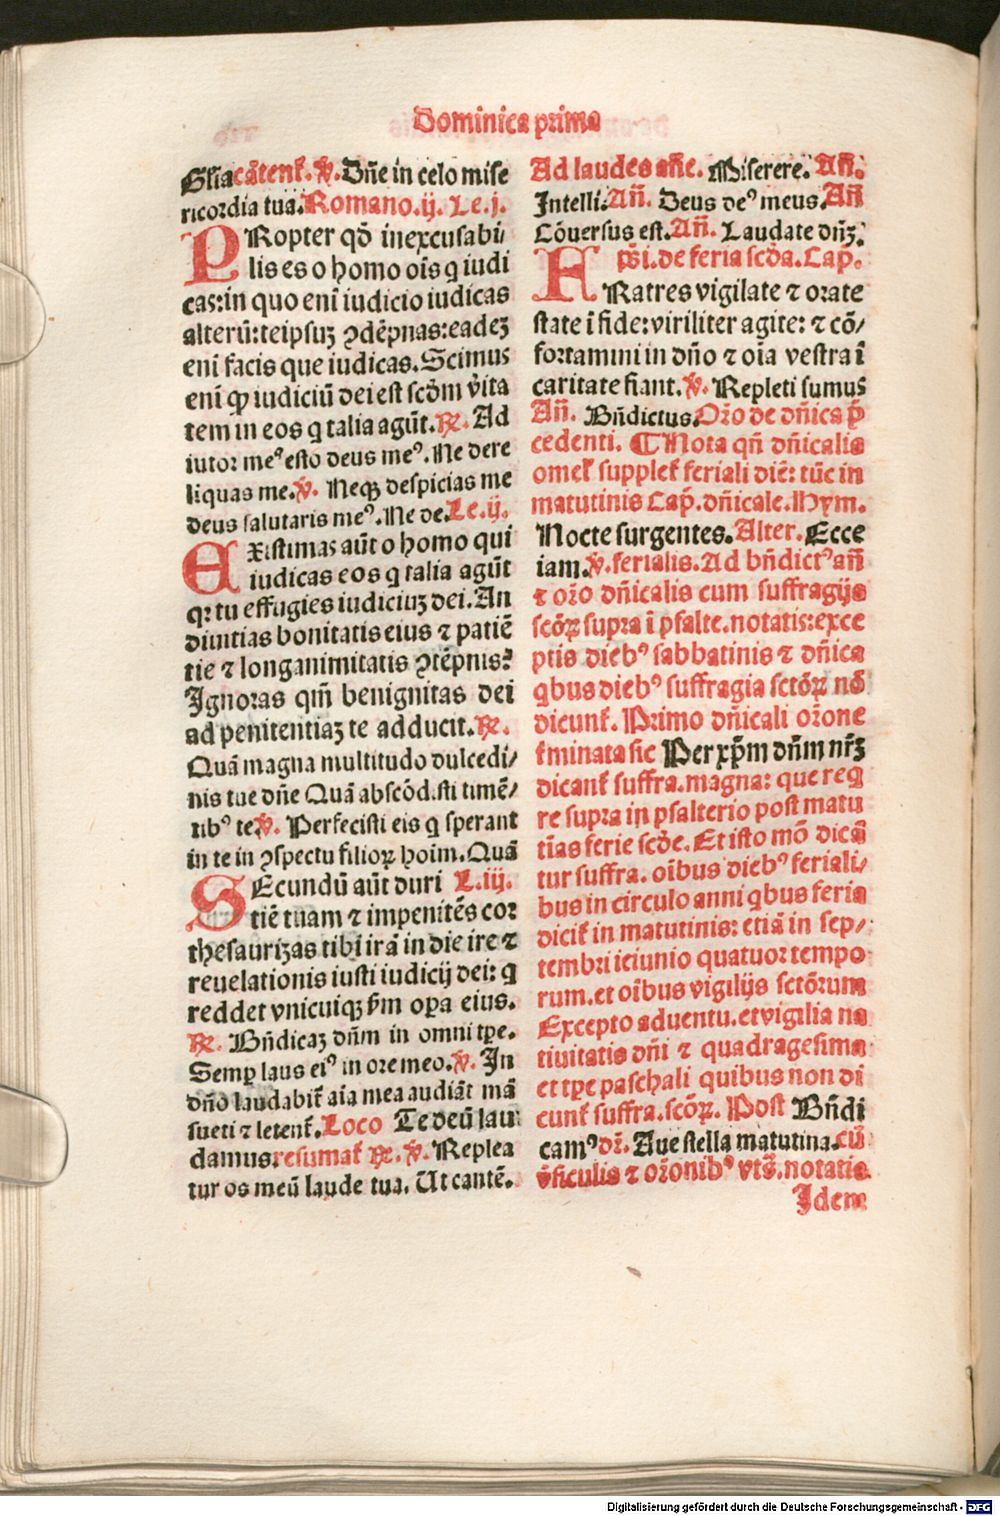 Dominica prima
Gl̄ia cātenł. ℣. Dn̄e in celo mise
ricordia tua. Romano. ij. Le. j.
PRopter qđ inexcusabi/
lis es o homo oīs q iudi
cas: in quo enī iudicio iudicas
alterū: teipsuꝫ ꝯdēpnas: eadeꝫ
enī facis que iudicas. Scimus
enī ꝙ iudiciū dei est scđm v̄ita
tem in eos q talia agūt. ℟. Ad
iutor meꝰ esto deus meꝰ. Ne dere
liquas me. ℣. Neqꝫ despicias me
deus salutaris meꝰ. Ne de. Le. ij.
EXistimas aūt o homo qui
iudicas eos q talia agūt
qꝛ tu effugies iudiciuꝫ dei. An
diuitias bonitatis eius ⁊ patiē
tie ⁊ longanimitatis ꝯtēpnis?
Ignoras qm̄ benignitas dei
ad penitentiaꝫ te adducit. ℟.
Quā magna multitudo dulcedi/
nis tue dn̄e Quā abscōd.sti timē/
tibꝰ te ℣. Perfecisti eis q sperant
in te in ꝯspectu filioꝝ hoīm. Quā
SEcundū aūt duri L. iij.
tiē tuam ⁊ impenitēs cor
thesaurizas tibi irā in die ire ⁊
reuelationis iusti iudicij dei: q
reddet vnicuiqꝫ s̄m oꝑa eius.
℟. Bn̄dicaꝫ dn̄m in omni tꝑe.
Semꝑ laus eiꝰ in ore meo. ℣. In
dn̄o laudabiť aīa mea audiāt mā
sueti ⁊ letenť. Loco Te deū lau
damus resumať ℟. ℣. Replea
tur os meū laude tua. Ut cantē.
Ad laudes an̄e. Miserere. An̄.
Intelli. An̄. Deus deꝰ meus. An̄
Cōuersus est. An̄. Laudate dn̄ꝫ.
p̄s̄i. de feria scđa. Cap̄.
FRatres vigilate ⁊ orate
state ī fide: viriliter agite: ⁊ cō/
fortamini in dn̄o ⁊ oīa vestra ī
caritate fiant. ℣. Repleti sumus
An̄. Bn̄dictus. Or̄o de dn̄ica p̄
cedenti. ¶ Nota qn̄ dn̄icalis
omeł suppleť feriali diē: tūc in
matutinis Cap̄. dn̄icale. Hym.
Nocte surgentes. Alter. Ecce
iam. ℣. ferialis. Ad bn̄dictꝰ an̄
⁊ or̄o dn̄icalis cum suffragijs
scōꝝ supra ī psalte. notatis: exce
ptis diebꝰ sabbatinis ⁊ dn̄ica
qbus diebꝰ suffragia sctōꝝ nō
dicunť. Primo dn̄icali or̄one
ťminata sic Per xp̄m dn̄m nr̄ꝫ
dicanť suffra. magna: que req
re supra in psalterio post matu
tīas ferie scđe. Et isto mō dicā
tur suffra. oībus diebꝰ feriali/
bus in circulo anni qbus feria
diciť in matutinis: etiā in sep/
tembri ieiunio quatuor tempo
rum. et oībus vigilijs sctōrum
Excepto aduentu. et vigilia na
tiuitatis dn̄i ⁊ quadragesima
et tꝑe paschali quibus non di
cunť suffra. scōꝝ. Post Bn̄di
camꝰ dr̄. Aue stella matutina. cū
v̄siculis ⁊ or̄onibꝰ vts̄. notatis
Idem
Digitalisierung gefördert durch die Deutsche Forschungsgemeinschaft - DFG